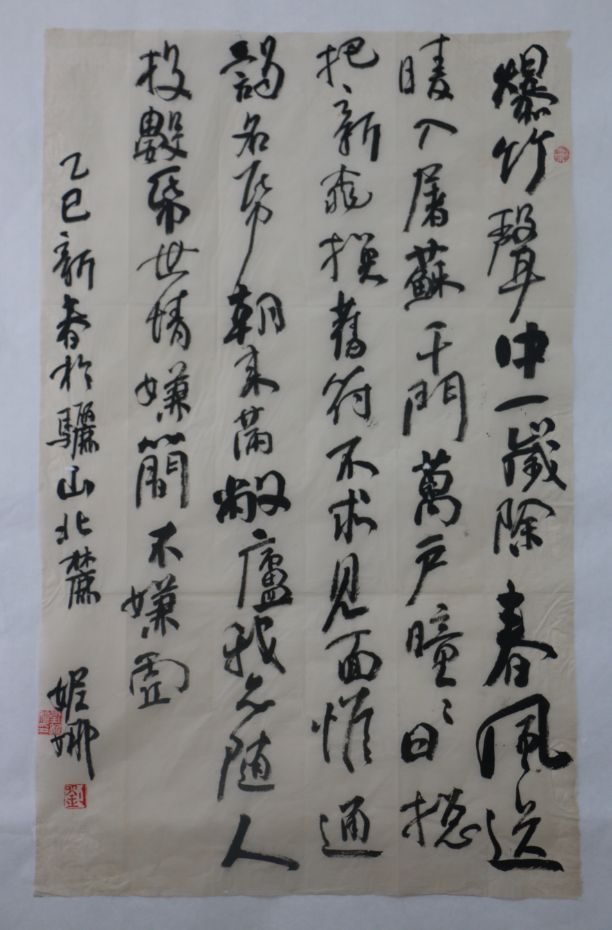 爆竹聲中一歲除春風送
暖入屠蘇千門萬戶曈〻日揔
把新桃换舊符不求見面惟通
謁名帋朝來滿敝廬我亦随人
投數帋世情嫌簡不嫌虛
乙巳新春於驪山北麓 姬娜